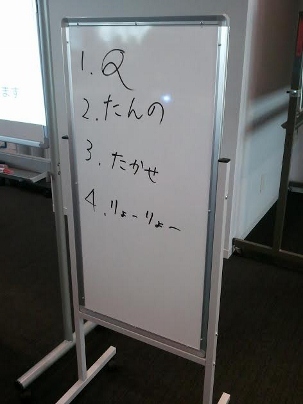 ます
1. Q
2. たんの
3. たかせ
4. りょーりょー